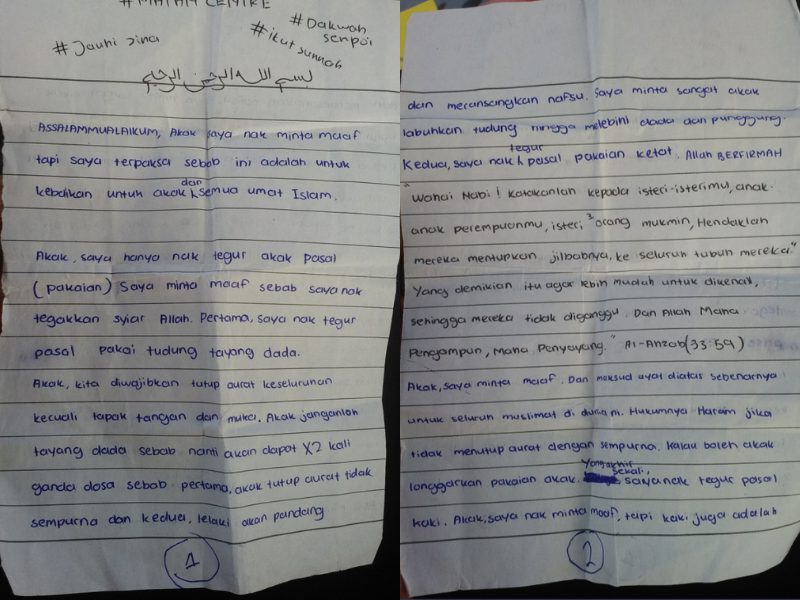 #MATAM CENTRE
#Dakwah
senpai
#ikut sunnah
#Jauhi zina
بسم الله الرحمن الرحيم
ASSALAMMUALAIKUM, Akak saya nak minta maaf
tapi saya terpaksa sebab ini adalah untuk
kebaikan untuk akak dan semua umat Islam.
Akak, saya hanya nak tegur akak pasal
(pakaian) Saya minta maaf sebab saya nak
tegakkan syiar Allah. Pertama, saya nak tegur
pasal pakai tudung tayang dada.
Akak, kita diwajibkan tutup aurat keseluruhan
kecuali tapak tangan dan muka. Akak janganlah
tayang dada sebab nanti akan dapat X2 kali
ganda dosa sebab pertama, akak tutup aurat tidak
sempurna dan kedua, lelaki akan pandang
1
dan meransangkan nafsu. Saya minta sangat akak
labuhkan tudung hingga melebihi dada dan punggung.
Kedua, saya nak tegur pasal pakaian ketat. Allah BERFIRMAH
"Wahai Nabi! Katakanlah kepada isteri-isterimu, anak-
anak perempuanmu, isteri³ orang mukmin, Hendaklah
mereka mentupkan jilbabnya, ke seluruh tubuh mereka."
Yang demikian itu agar lebih mudah untuk dikenali,
sehingga mereka tidak diganggu. Dan Allah Maha
Pengampun, Maha Penyayang." Al-Ahzab (33:59)
Akak, saya minta maaf. Dan maksud ayat diatas sebenarnya
untuk seluruh muslimat di dunia ni. Hukumnya Haram jika
tidak menutup aurat dengan sempurna. Kalau boleh akak
longgarkan pakaian akak. Yang akhir sekali, saya nak tegur pasal
kaki. Akak, saya nak minta maaf, tapi kaki juga adalah
2